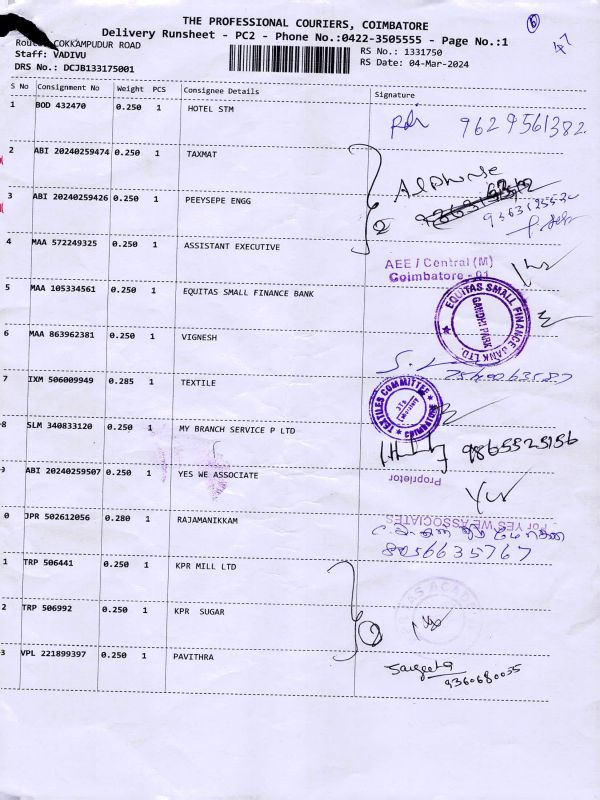 THE PROFESSIONAL COURIERS, COIMBATORE
Delivery Runsheet - PC2 - Phone No.:0422-3505555 - Page No.:1
COKKAMPUDUR ROAD
Staff: VADIVU
RS No.: 1331750
DRS No.: DCJB133175001
RS Date: 04-Mar-2024
S No Consignment No Weight PCS Consignee Details Signature
1 BOD 432470 0.250 1 HOTEL STM
9629561382
2 ABI 20240259474 0.250 1 TAXMAT
Alphonse
3 ABI 20240259426 0.250 1 PEEYSEPE ENGG
2
4 MAA 572249325 0.250 1 ASSISTANT EXECUTIVE
AEE / Central (M)
Coimbatore - 01
5 MAA 105334561 0.250 1 EQUITAS SMALL FINANCE BANK
EQUITAS SMALL FINANCE BANK LTD
GANDHI PARK
6 MAA 863962381 0.250 1 VIGNESH
7 IXM 506009949 0.285 1 TEXTILE
TEXTILES COMMITTEE
COIMBATORE
8 SLM 340833120 0.250 1 MY BRANCH SERVICE P LTD
9865525156
9 ABI 20240259507 0.250 1 YES WE ASSOCIATE
Proprietor
For YES WE ASSOCIATES
0 JPR 502612056 0.280 1 RAJAMANIKKAM
8056635767
1 TRP 506441 0.250 1 KPR MILL LTD
2 TRP 506992 0.250 1 KPR SUGAR
2
3 VPL 221899397 0.250 1 PAVITHRA
Sangeetha
9360680035